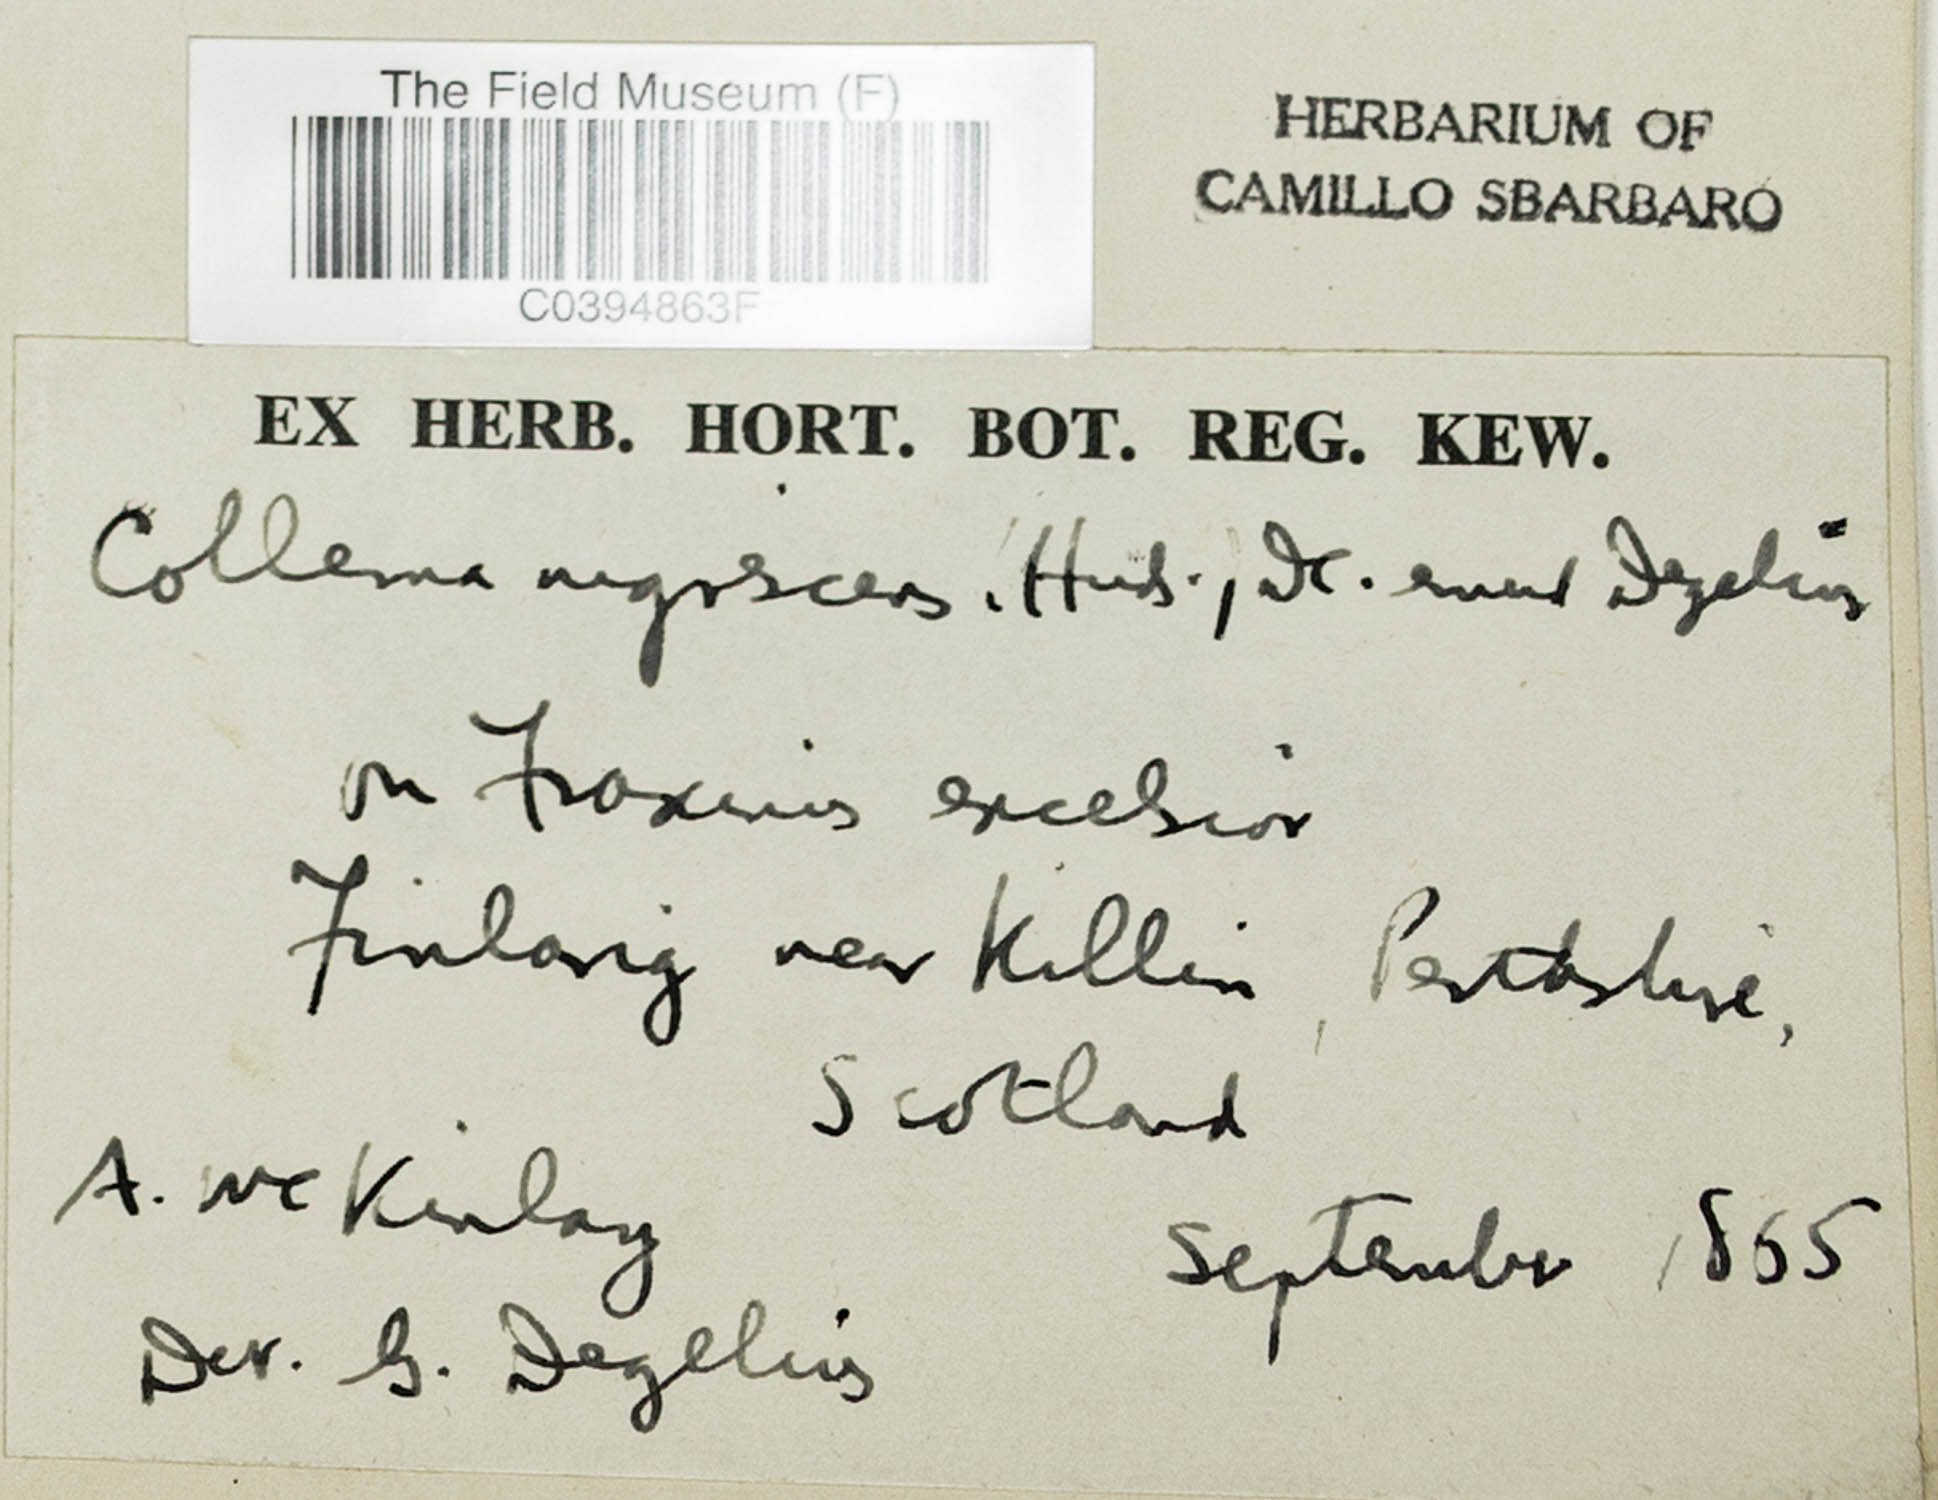 The Field Museum (F)
C0394863F
HERBARIUM OF
CAMILLO SBARBARO
EX HERB. HORT. BOT. REG. KEW.
Collema nigrescens (Huds.) DC. emend Degelius
on Fraxinus excelsior
Finlarig near Killin, Perthshire,
Scotland
A. McKinlay
September 1865
Det. G. Degelius